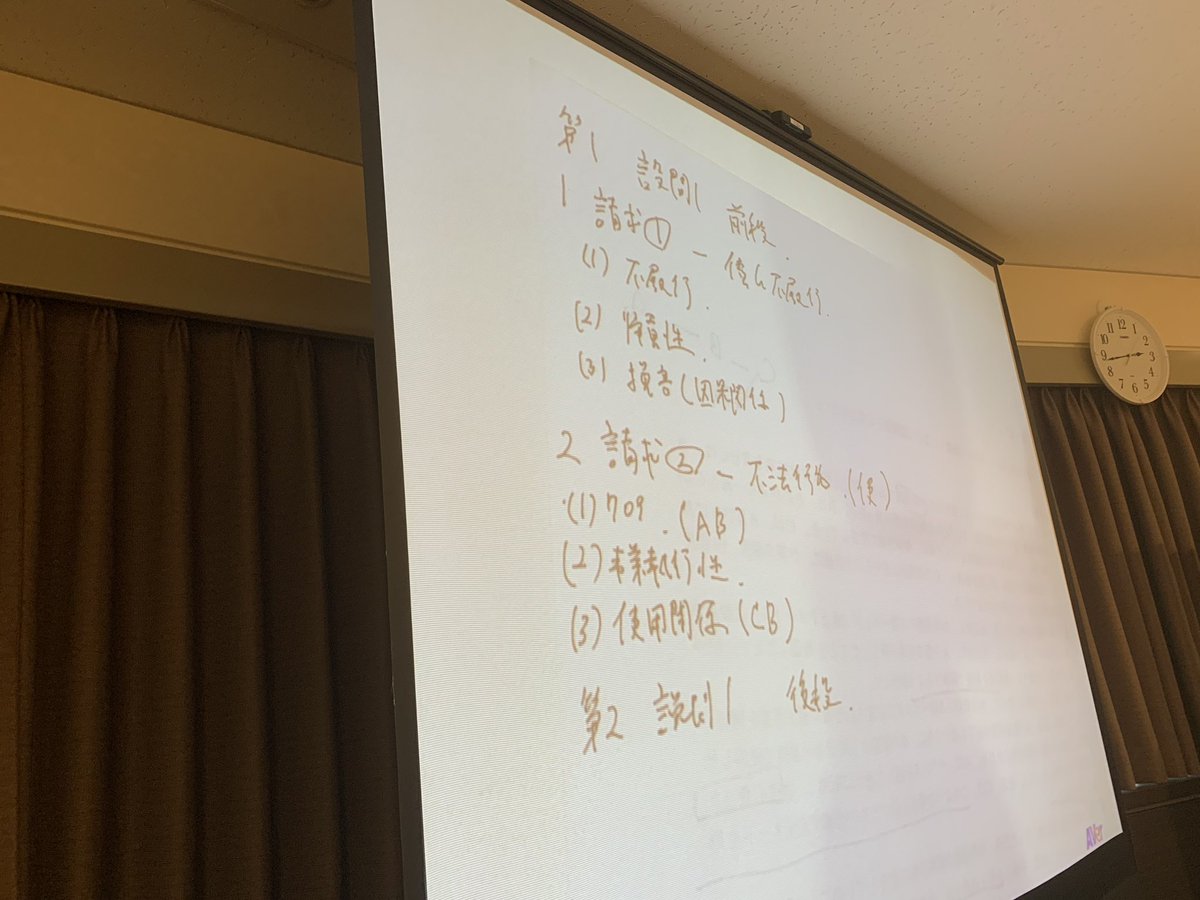 第1 設問1 前段.
1 請求① ー 債ム不履行.
(1) 不履行.
(2) 帰責性.
(3) 損害(因果関係)
2 請求② ー 不法行為.(使)
(1) 709.(AB)
(2) 事業執行性.
(3) 使用関係(CB)
第2 設問1 後段.
AVer
12 1 2 3 4 5 6 7 8 9 10 11